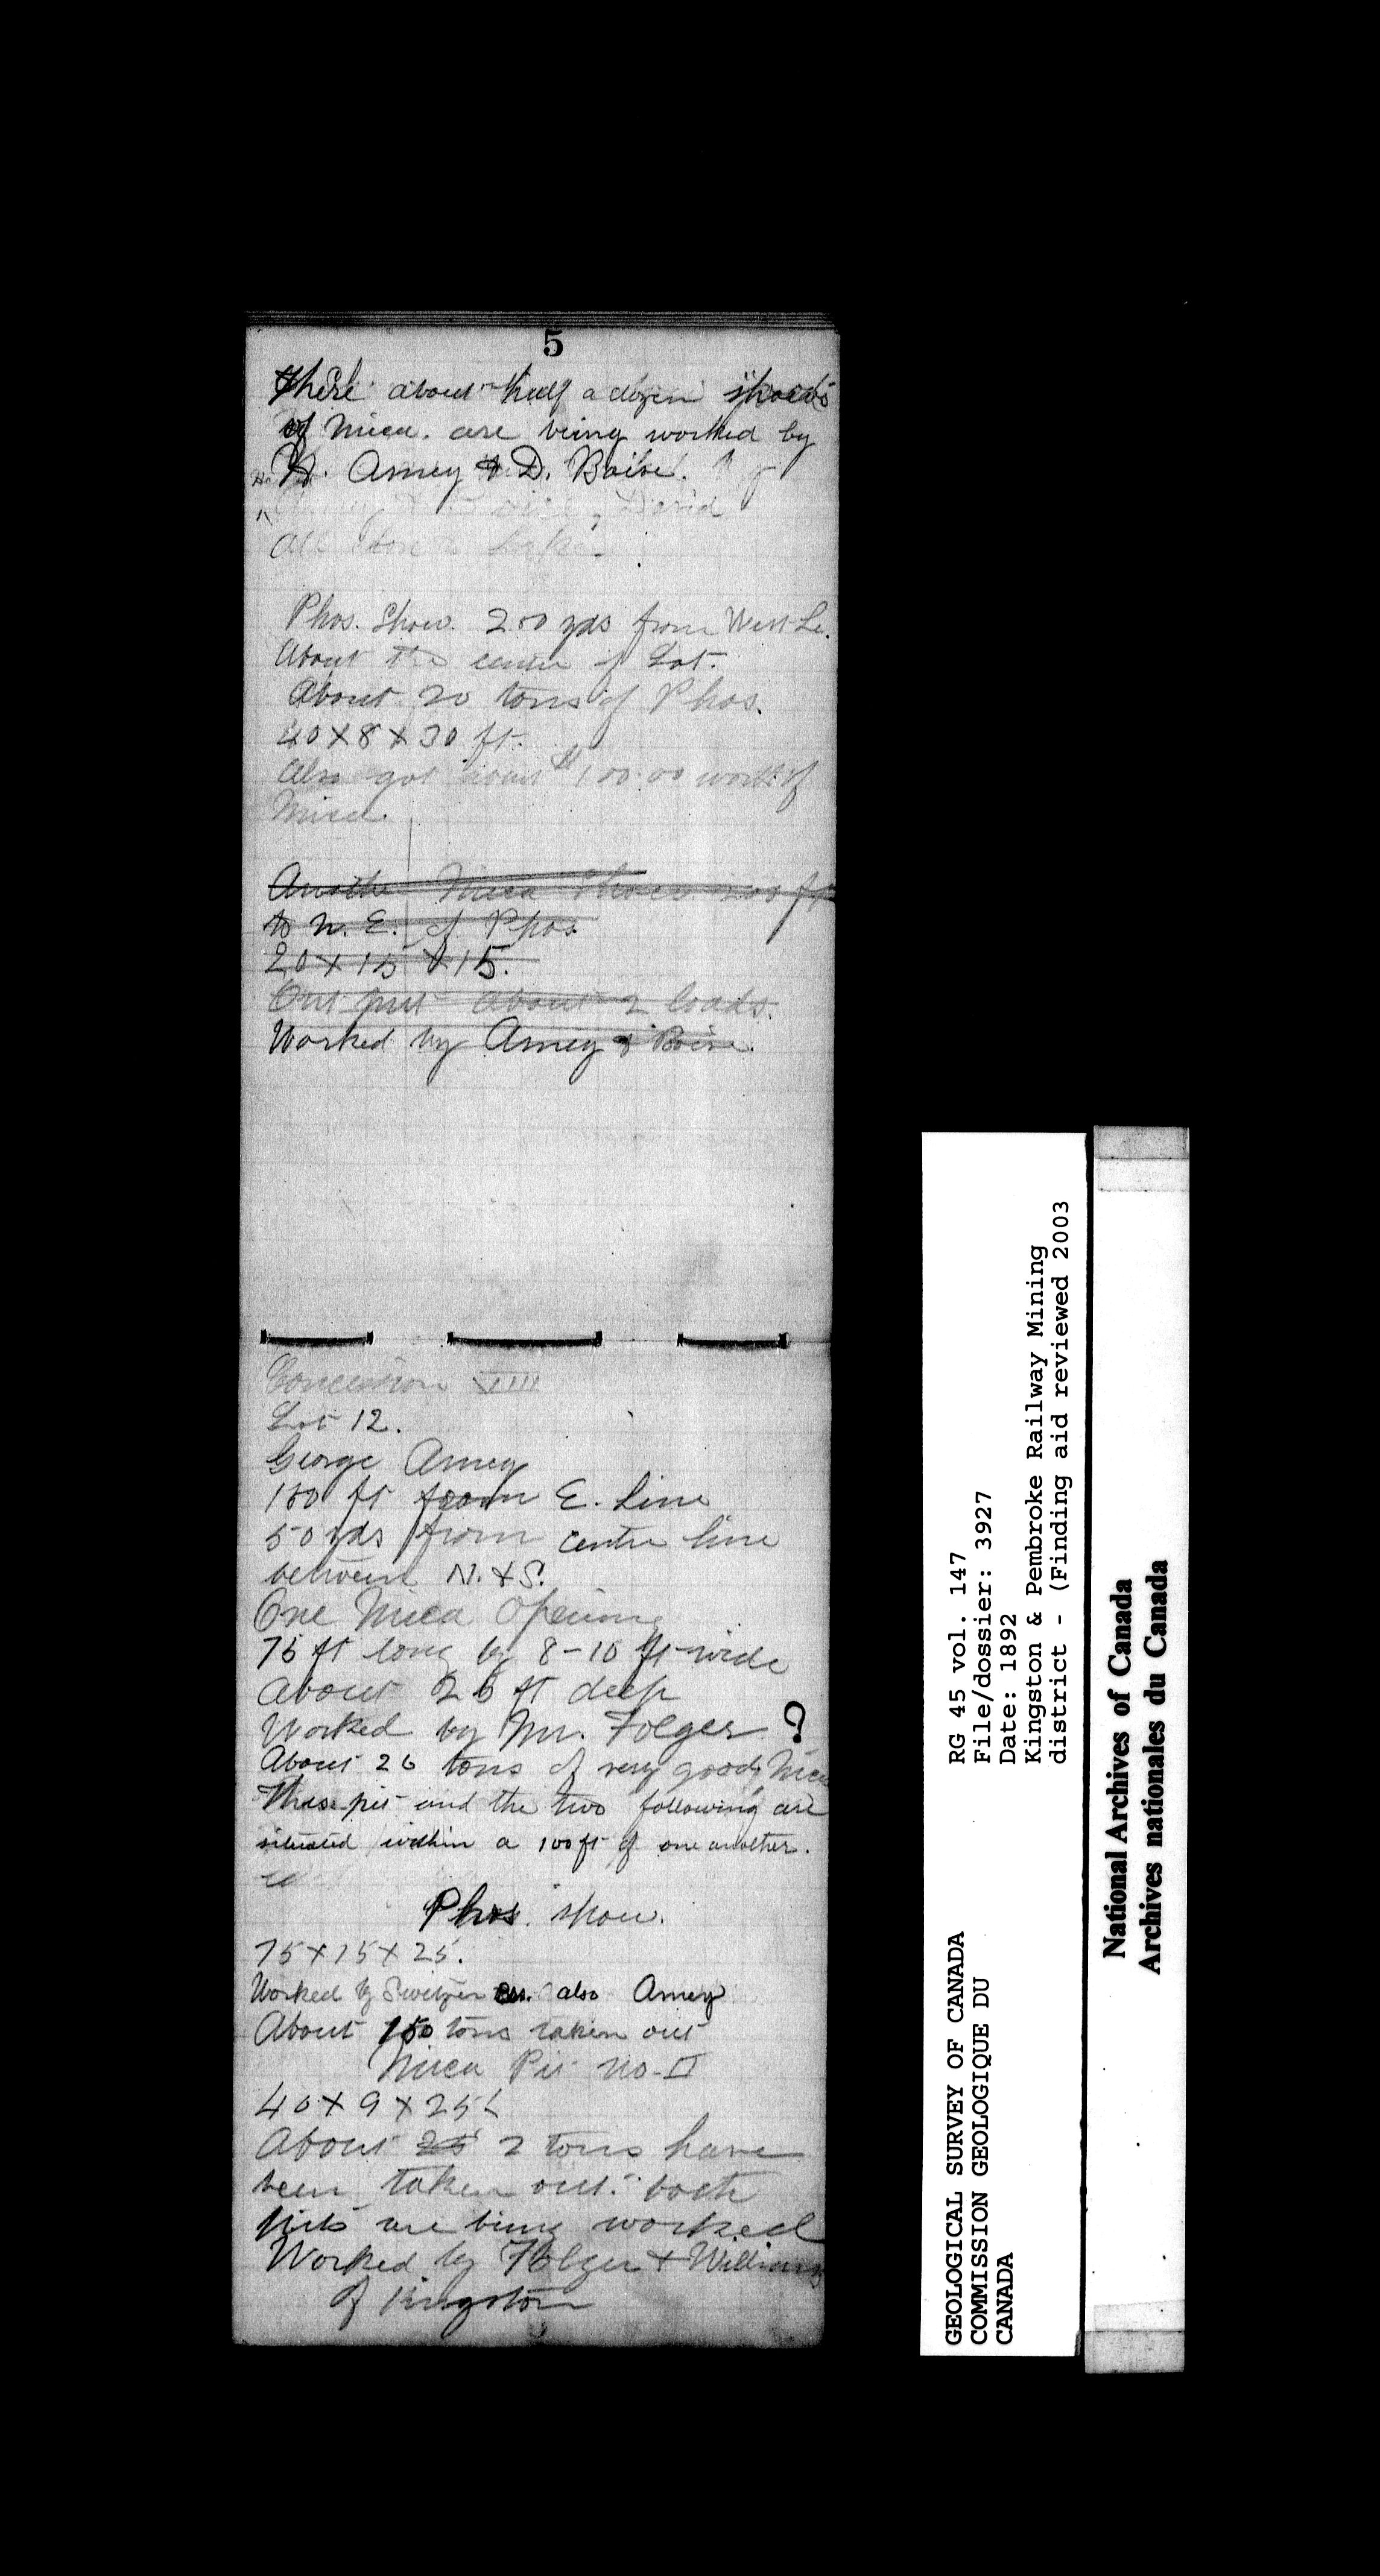 5
There about half a dozen shows
of mica. are being worked by
H. Amey & D. Boise.
David
All
Phos. Show. 200 yds from West Li.
About the center of Lot.
About 20 tons of Phos.
40 x 8 x 30 ft.
Also got about $100.00 worth of
Mica.
Another Mica Show 200 ft
to N. E. of Phos.
20 x 15 x 15.
Out put about 2 loads.
Worked by Amey & Boise.
Concession VIII
Lot 12.
George Amey
150 ft from E. Line
50 yds from centre line
between N. & S.
One Mica Opening
75 ft long by 8-10 ft wide
About 25 ft deep
Worked by Mr. Folger ?
About 20 tons of very good Mica
This pit and the two following are
situated within a 100 ft of one another.
Phos. show.
75 x 15 x 25.
Worked by Switzer also Amey
About 150 tons taken out
Mica Pit no. II
40 x 9 x 25
About 25 2 tons have
been taken out. both
pits are being worked
Worked by Folger & Williams
of Kingston
GEOLOGICAL SURVEY OF CANADA
COMMISSION GEOLOGIQUE DU
CANADA
RG 45 vol. 147
File/dossier: 3927
Date: 1892
Kingston & Pembroke Railway Mining
district - (Finding aid reviewed 2003
National Archives of Canada
Archives nationales du Canada